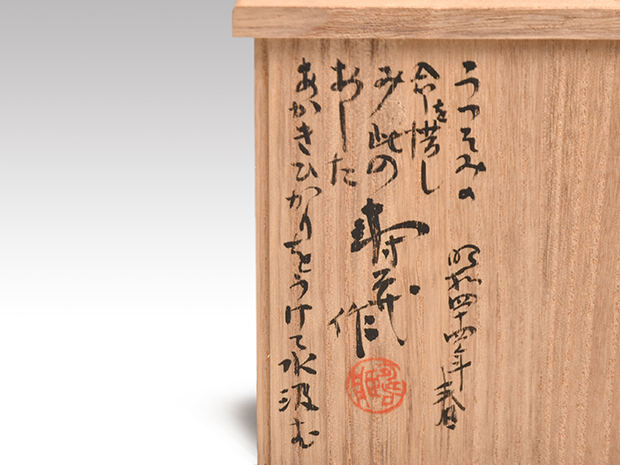 うつそみの
命を惜し
み此の
あした
あかきひかりをうけて水汲む
昭和四十四年春
寿哉作